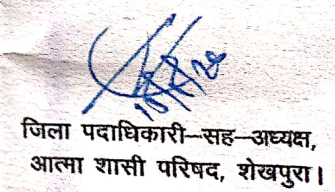 जिला पदाधिकारी–सह–अध्यक्ष,
आत्मा शासी परिषद, शेखपुरा।